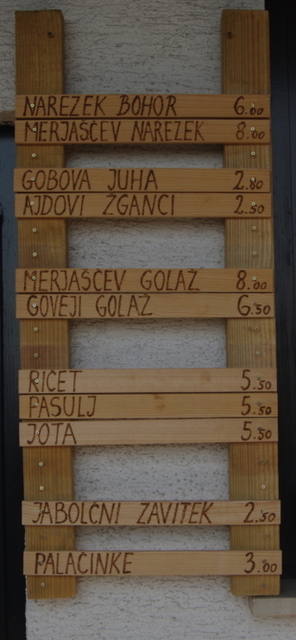 NAREZEK BOHOR 6.00
MERJAŠČEV NAREZEK 8.00
GOBOVA JUHA 2.80
AJDOVI ŽGANCI 2.50
MERJAŠČEV GOLAŽ 8.00
GOVEJI GOLAŽ 6.50
RIČET 5.50
PASULJ 5.50
JOTA 5.50
JABOLČNI ZAVITEK 2.50
PALAČINKE 3.00